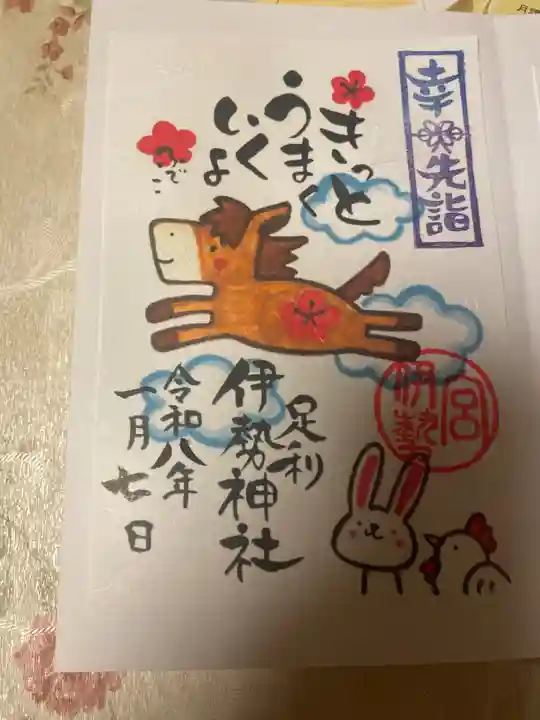 幸先詣
きっと
うまく
いくよ
ふでこ
足利
伊勢神社
令和八年
一月七日
伊勢宮